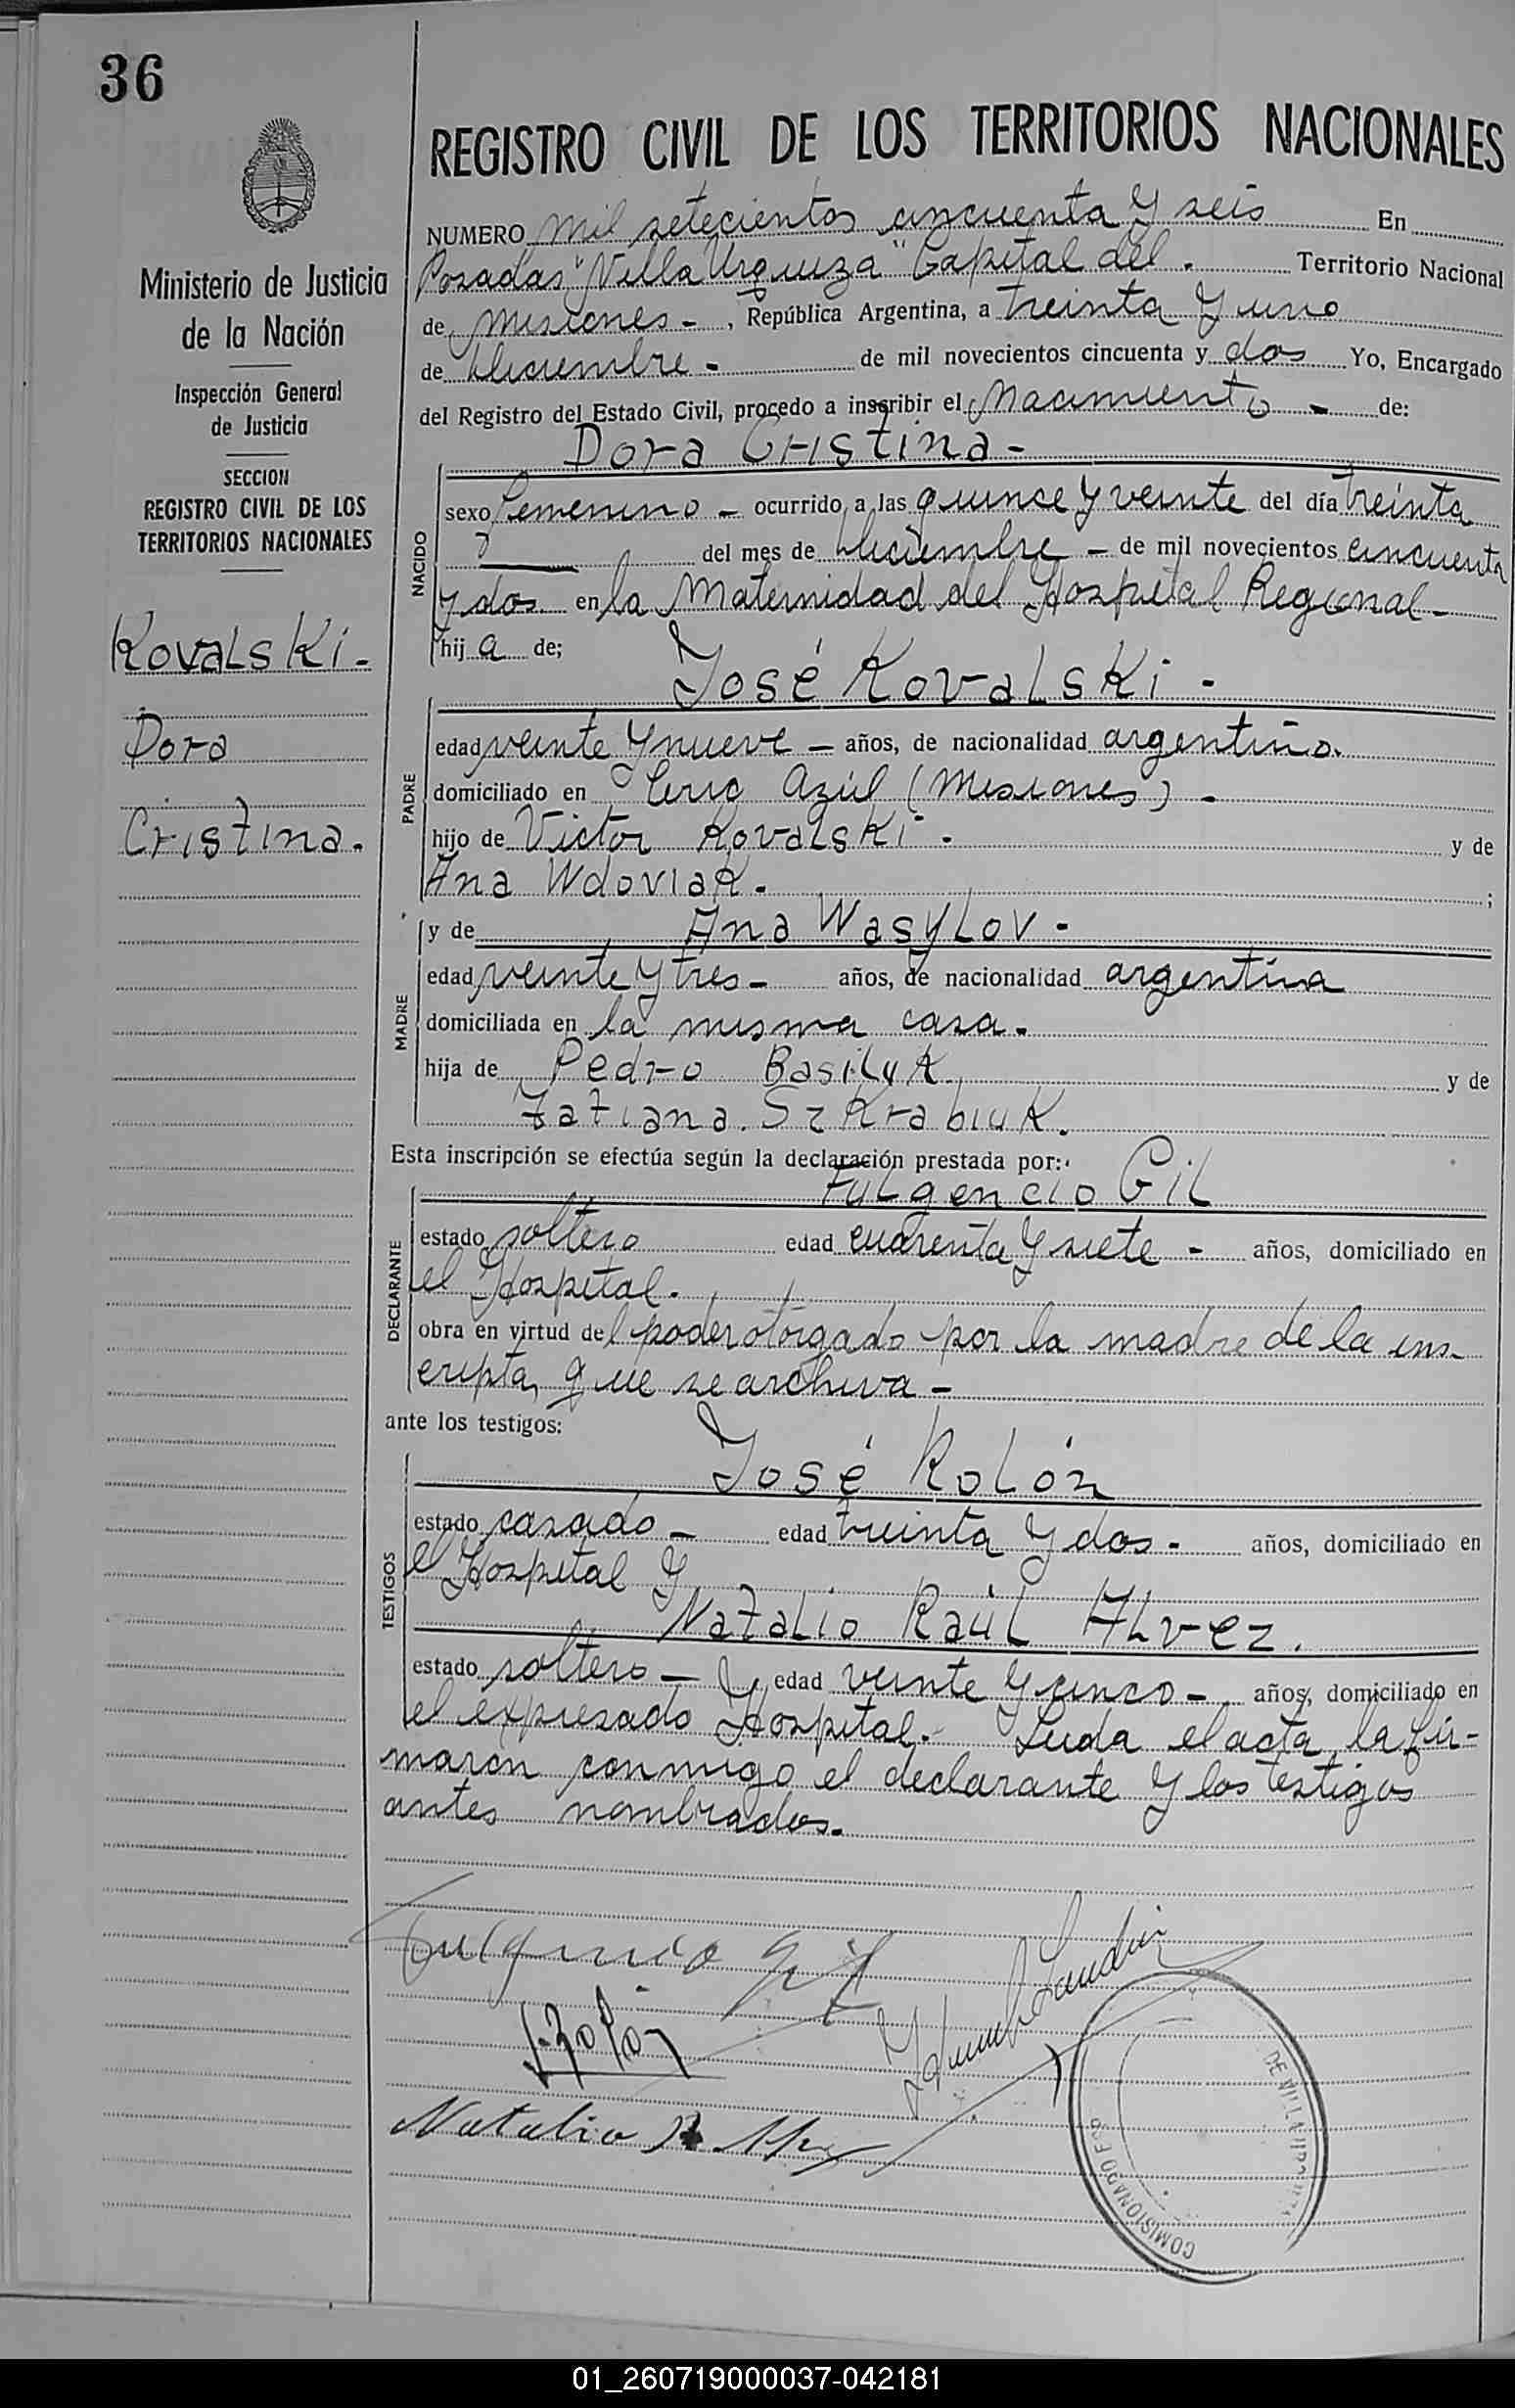 36
REGISTRO CIVIL DE LOS TERRITORIOS NACIONALES
Ministerio de Justicia
de la Nación
Inspección General
de Justicia
SECCION
REGISTRO CIVIL DE LOS
TERRITORIOS NACIONALES
Kovalski-
Dora
Cristina.
NUMERO mil setecientos cincuenta y seis En
Posadas "Villa Urquiza" Capital del. Territorio Nacional
de Misiones-, República Argentina, a treinta y uno
de Diciembre- de mil novecientos cincuenta y dos Yo, Encargado
del Registro del Estado Civil, procedo a inscribir el Nacimiento- de:
Dora Cristina-
NACIDO
sexo femenino- ocurrido a las quince y veinte del día treinta
del mes de Diciembre- de mil novecientos cincuenta
y dos en la Maternidad del Hospital Regional-
hija de;
José Kovalski-
PADRE
edad veinte y nueve- años, de nacionalidad argentino.
domiciliado en Cerro Azúl (Misiones)-
hijo de Victor Kovalski- y de
Ana Wdoviak-;
MADRE
y de Ana Wasylov-
edad veinte y tres- años, de nacionalidad argentina
domiciliada en la misma casa.
hija de Pedro Basilyk y de
Tatiana Szkrabiuk.
Esta inscripción se efectúa según la declaración prestada por:
Fulgencio Gil
DECLARANTE
estado soltero edad cuarenta y siete- años, domiciliado en
el Hospital.
obra en virtud del poder otorgado por la madre de la ins-
cripta, que se archiva-
ante los testigos:
José Rolón
TESTIGOS
estado casado- edad treinta y dos- años, domiciliado en
el Hospital y
Natalio Raúl Alvez.
estado soltero- y edad veinte y cinco- años, domiciliado en
el expresado Hospital. Leida el acta, la fir-
maron conmigo el declarante y los testigos
antes nombrados.
Fulgencio Gil
Natalio R. Alvez
COMISIONADO
01_260719000037-042181